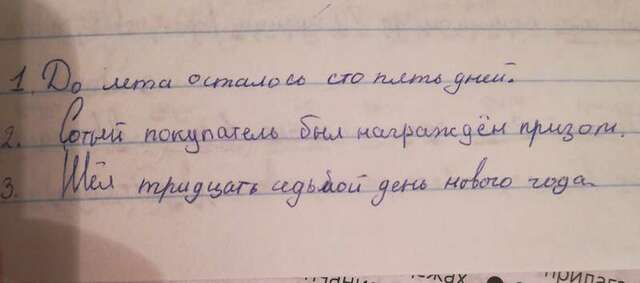 1. До лета осталось сто пять дней.
2. Сотый покупатель был награждён призом.
3. Шёл тридцать седьмой день нового года.